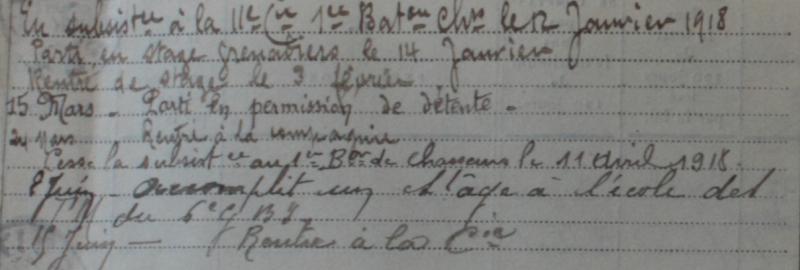 En subsistce à la 11e Cie 1er Baton Chrs le 12 Janvier 1918
Parti en stage grenadiers le 14 Janvier
Rentré de stage le 3 février
15 Mars - Parti en permission de détente -
24 Mars Rentré à la compagnie
Cesse la subsistce au 1er Bon de chasseurs le 11 Avril 1918.
8 Juin accomplit un stage à l'école des
du 6e
15 Juin — Rentre à la Cie